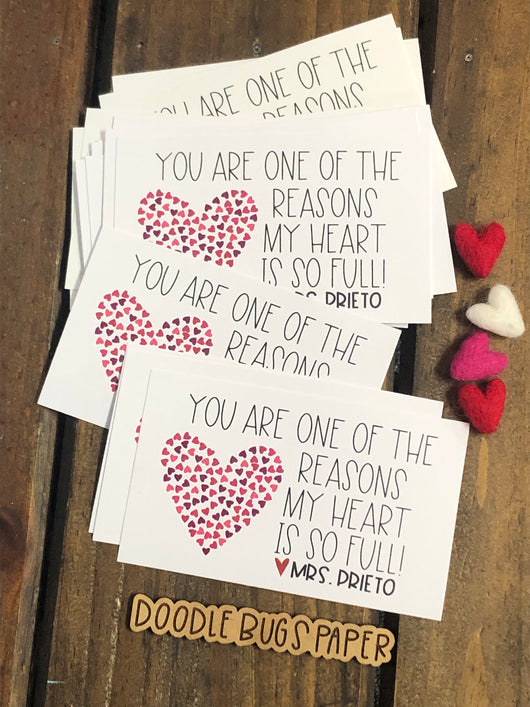 YOU ARE ONE OF THE
REASONS
YOU ARE ONE OF THE
REASONS
MY HEART
IS SO FULL!
MRS. PRIETO
YOU ARE ONE OF THE
REASONS
YOU ARE ONE OF THE
REASONS
MY HEART
IS SO FULL!
MRS. PRIETO
DOODLE BUGS PAPER